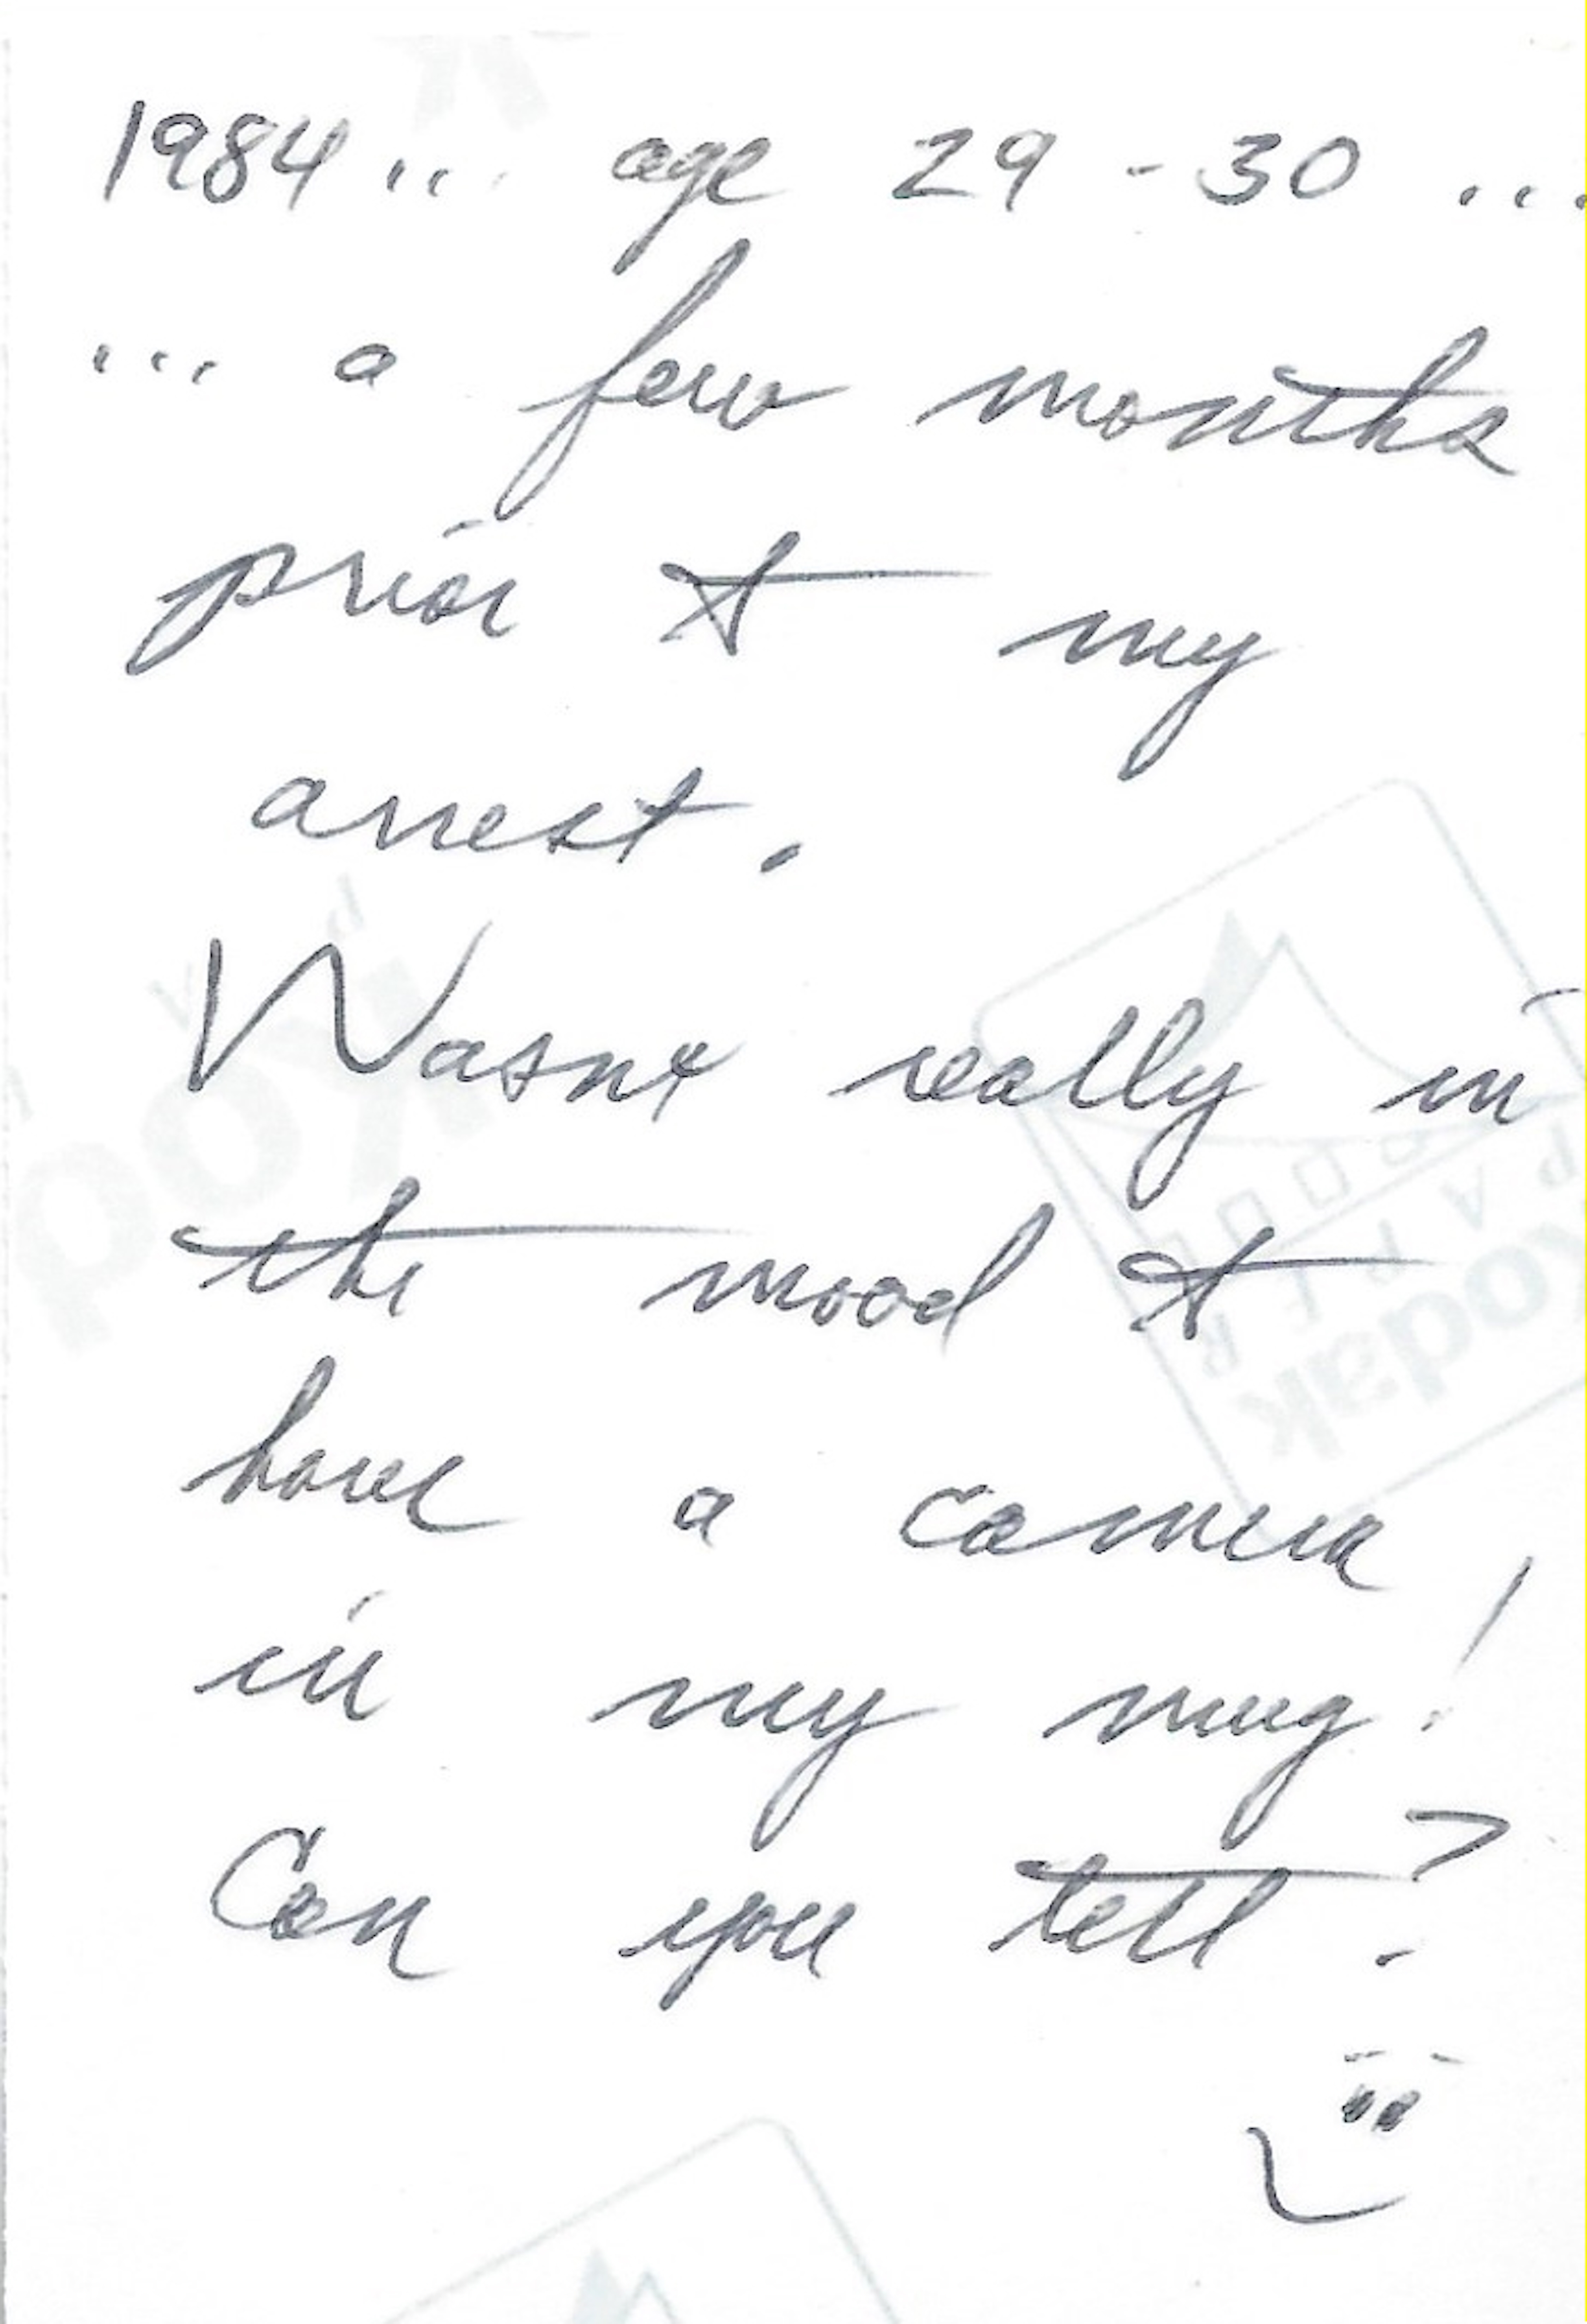 1984... age 29-30...
... a few months
prior to my
arrest.
Wasnt really in
the mood to
have a camera
in my mug!
Can you tell?
Kodak
PAPER
Kod
PA